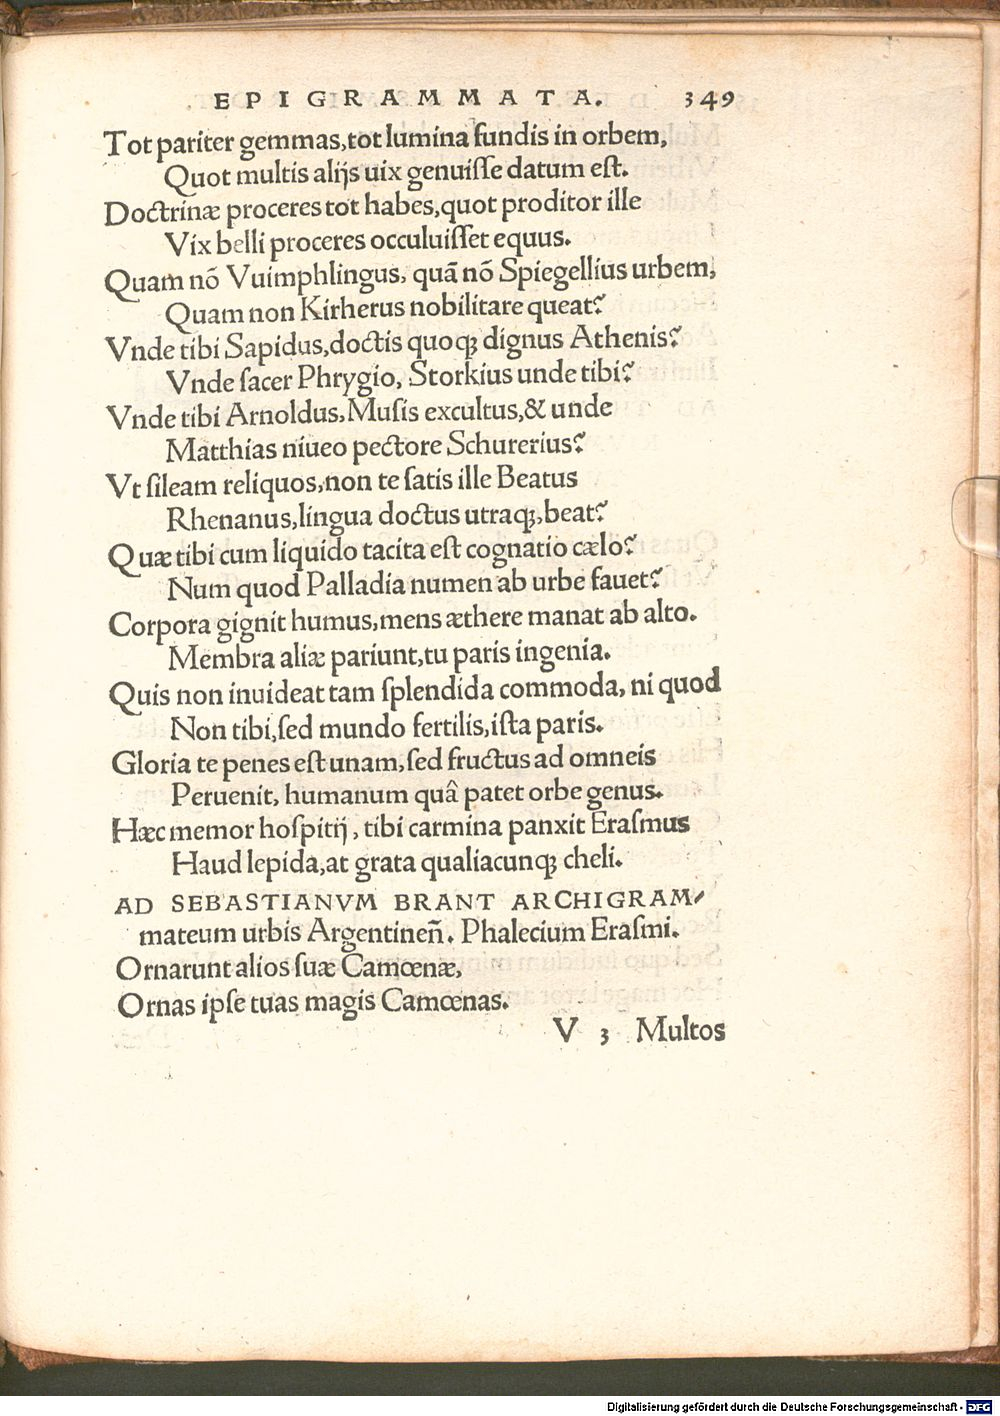 EPIGRAMMATA. 349
Tot pariter gemmas, tot lumina fundis in orbem,
Quot multis alijs uix genuiſſe datum eſt.
Doctrinæ proceres tot habes, quot proditor ille
Vix belli proceres occuluiſſet equus.
Quam nõ Vuimphlingus, quã nõ Spiegellius urbem,
Quam non Kirherus nobilitare queat?
Vnde tibi Sapidus, doctis quoqꝫ dignus Athenis?
Vnde ſacer Phrygio, Storkius unde tibi?
Vnde tibi Arnoldus, Muſis excultus, & unde
Matthias niueo pectore Schurerius?
Vt ſileam reliquos, non te ſatis ille Beatus
Rhenanus, lingua doctus utraqꝫ, beat?
Quæ tibi cum liquido tacita eſt cognatio cælo?
Num quod Palladia numen ab urbe fauet?
Corpora gignit humus, mens æthere manat ab alto.
Membra aliæ pariunt, tu paris ingenia.
Quis non inuideat tam ſplendida commoda, ni quod
Non tibi, ſed mundo fertilis, iſta paris.
Gloria te penes eſt unam, ſed fructus ad omneis
Peruenit, humanum quâ patet orbe genus.
Hæc memor hoſpitij, tibi carmina panxit Eraſmus
Haud lepida, at grata qualiacunqꝫ cheli.
AD SEBASTIANVM BRANT ARCHIGRAM⸗
mateum urbis Argentineñ. Phalecium Eraſmi.
Ornarunt alios ſuæ Camœnæ,
Ornas ipſe tuas magis Camœnas.
V 3 Multos
Digitalisierung gefördert durch die Deutsche Forschungsgemeinschaft - DFG